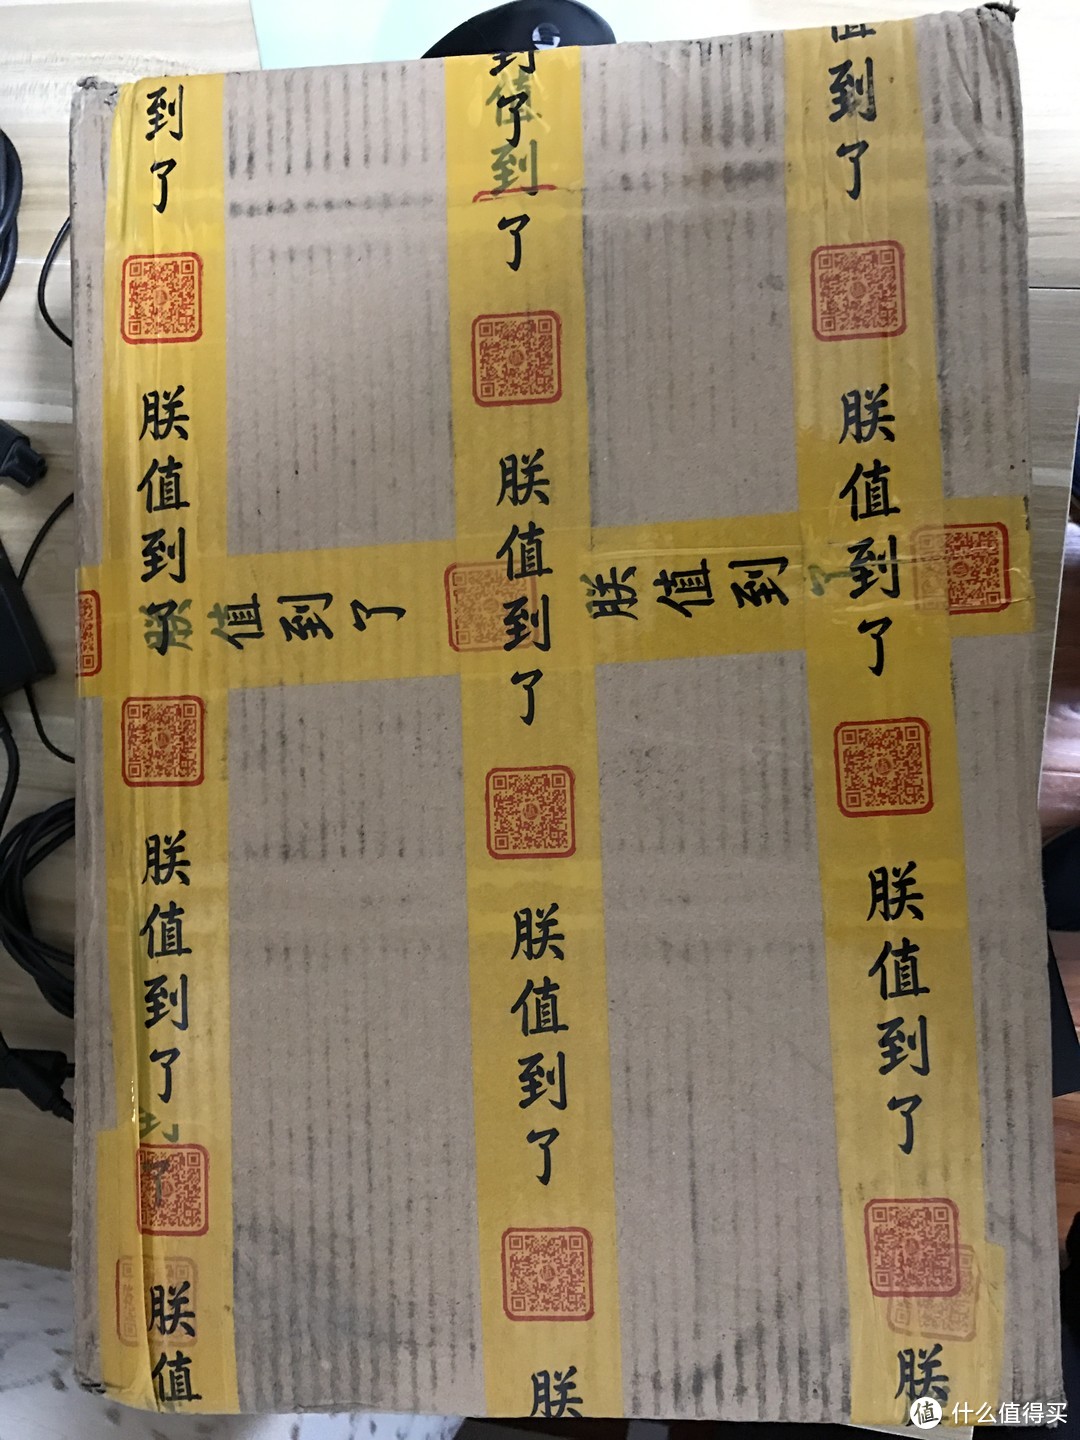 到了
朕值到了
朕值到了
朕值
到了
值到
了
朕值到了
朕值到了
朕
值到了
朕值到了
朕值到了
朕
朕值到了
朕值到了
值 什么值得买